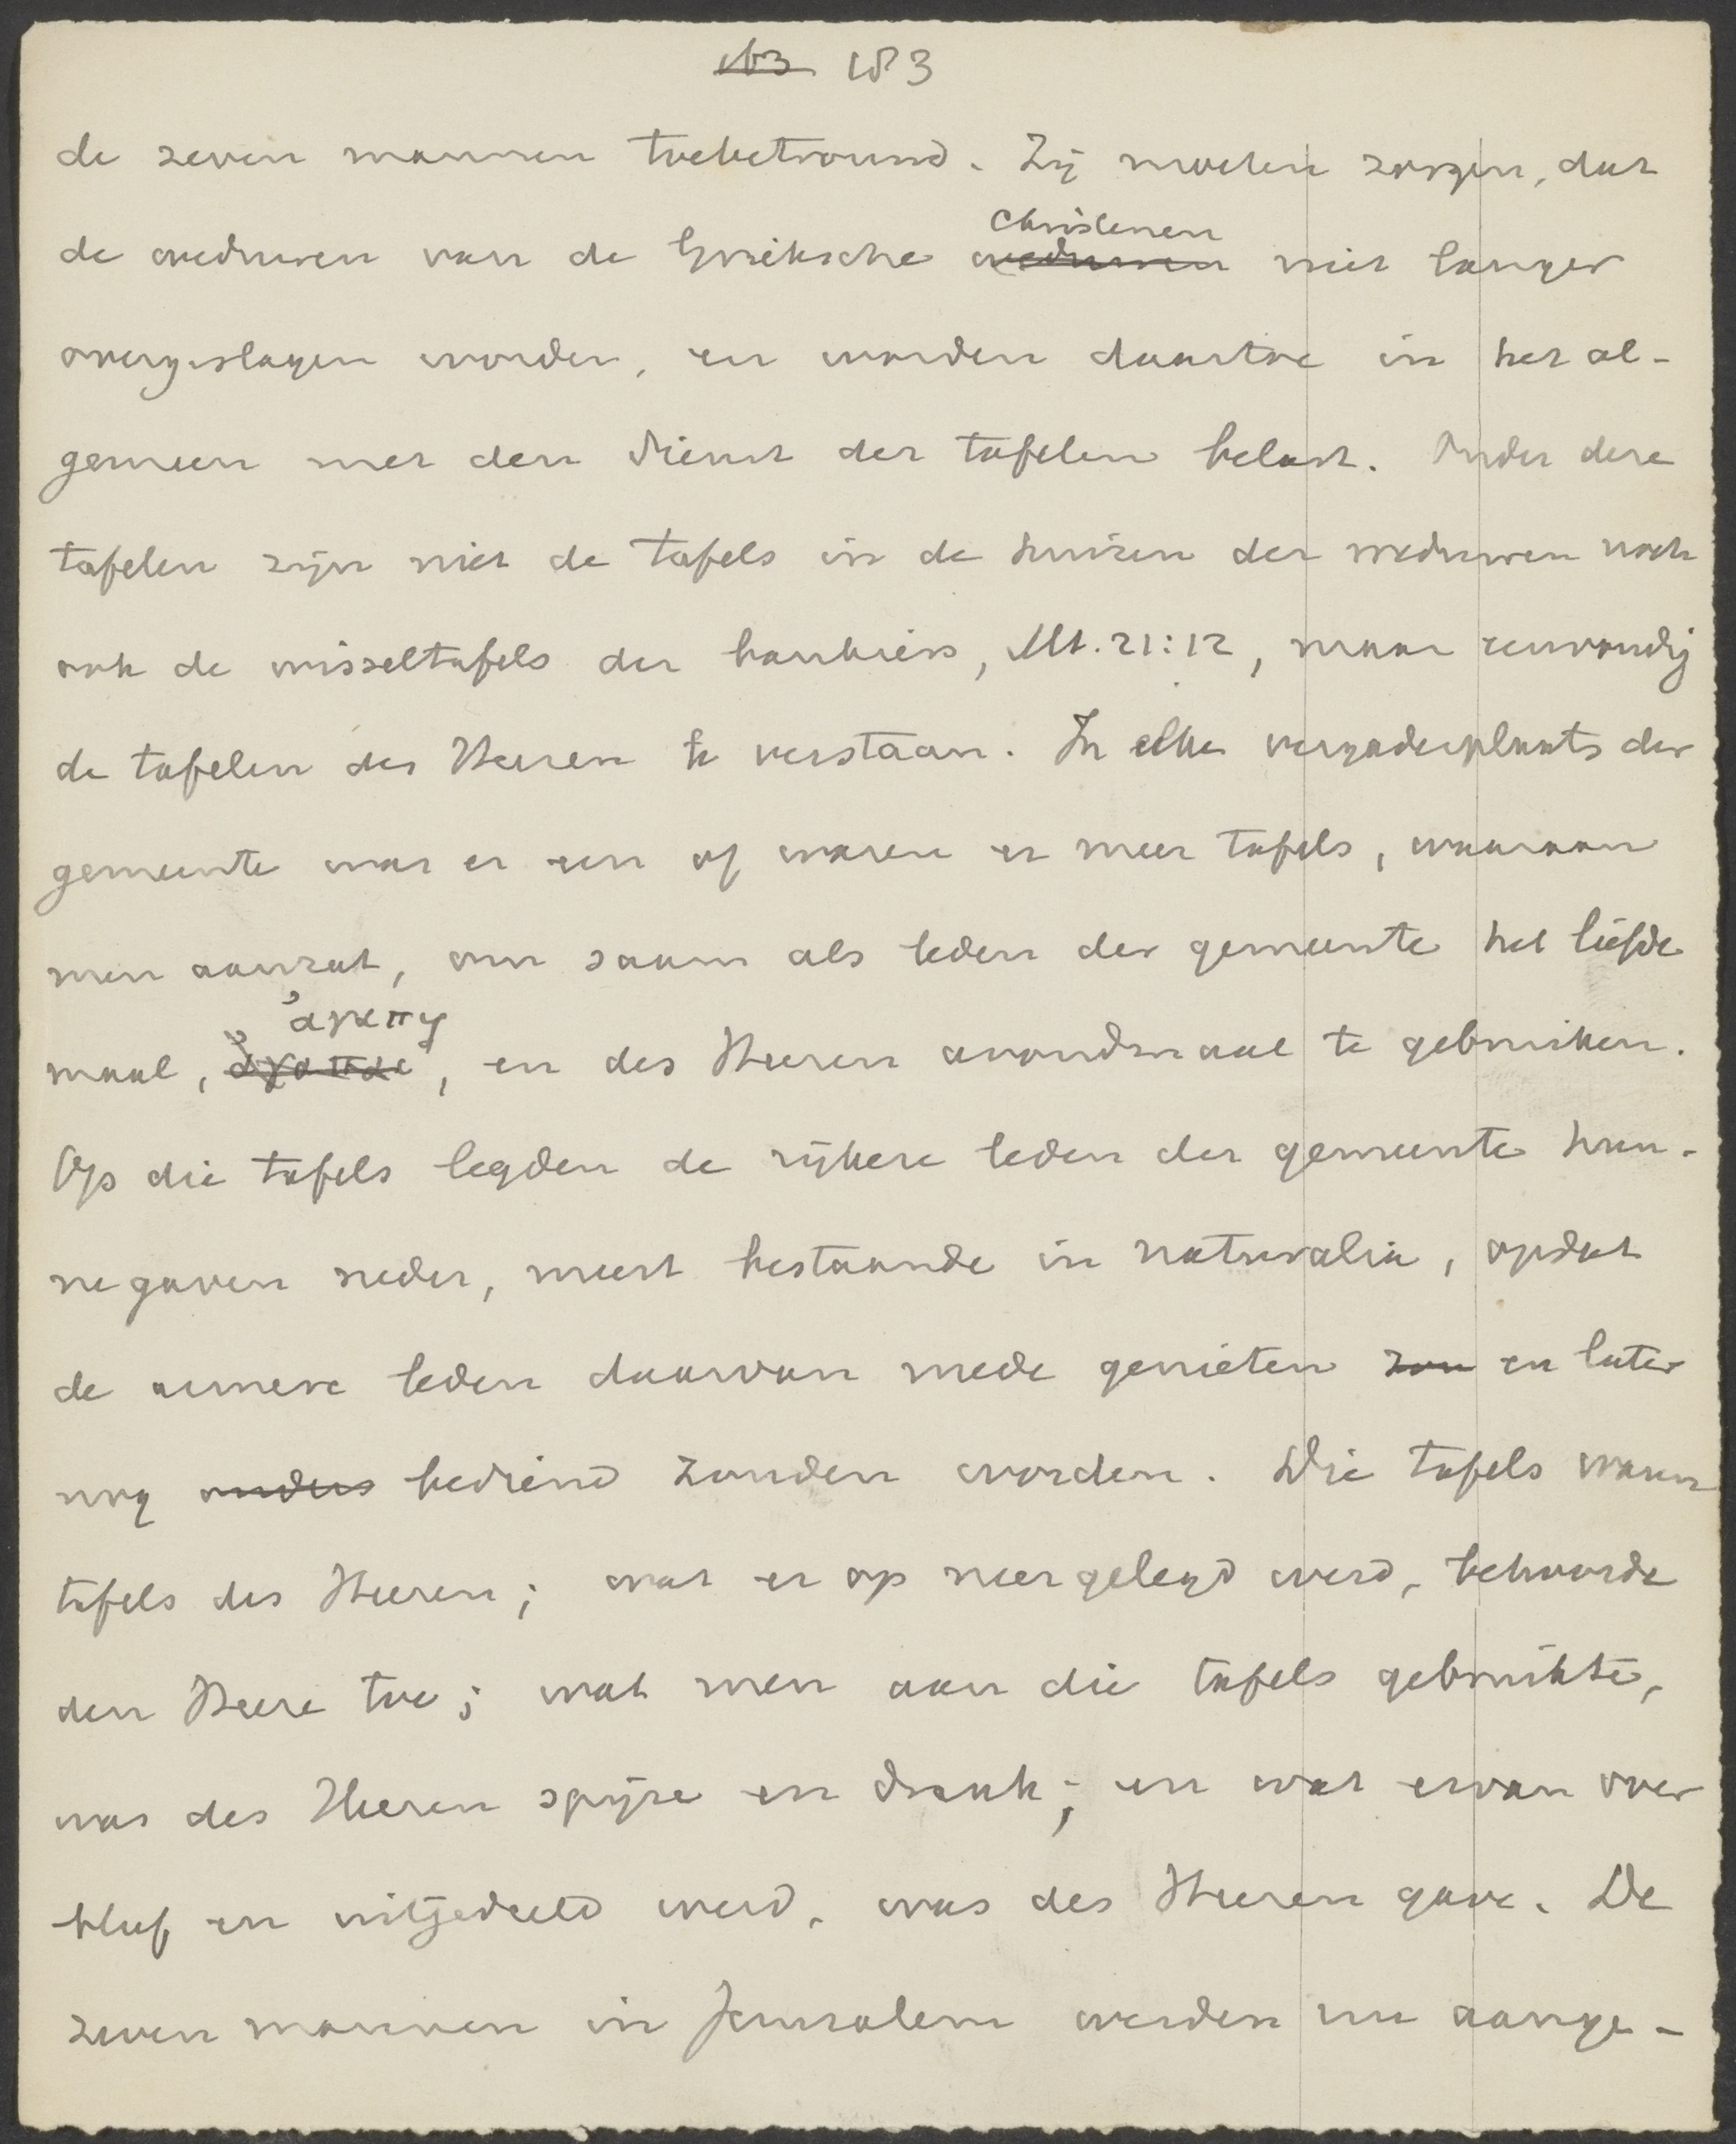 163 183
de zeven mannen toebetrouwd. Zij moeten zorgen, dat
Christenen
de weduwen van de Grieksche weduwen niet langer
overgeslagen worden, en worden daartoe in het al-
gemeen met den dienst der tafelen belast. Onder deze
tafelen zijn niet de tafels in de huizen der weduwen noch
ook de wisseltafels der bankiers, Mt. 21:12, maar eenvoudig
de tafelen des Heeren te verstaan. In elke vergaderplaats der
gemeente was er een of waren er meer tafels, waaraan
men aanzat, om saam als leden der gemeente het liefde
ἀγαπη
maal, ἀγαπαι, en des Heeren avondmaal te gebruiken.
Op die tafels legden de rijkere leden der gemeente hun-
ne gaven neder, meest bestaande in naturalia, opdat
de armere leden daarvan mede genieten zou en later
nog anders bediend zouden worden. Die tafels waren
tafels des Heeren; wat er op neergelegd werd, behoorde
den Heere toe; wat men aan die tafels gebruikte,
was des Heeren spijze en drank; en wat ervan over
bleef en uitgedeeld werd, was des Heeren gave. De
zeven mannen in Jeruzalem werden nu aange-